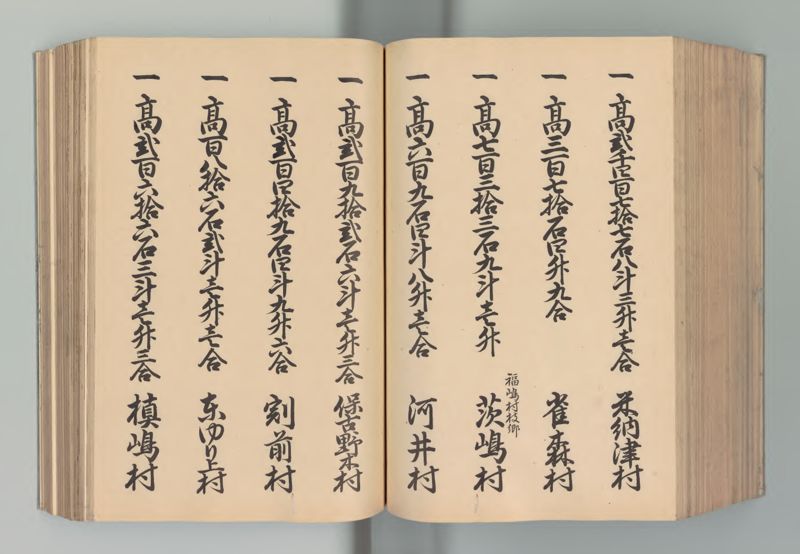 一 髙弐千四百七拾七石八斗三升壱合 米納津村
一 髙三百七拾石四升九合 雀森村
福嶋村枝郷
一 髙七百三拾三石九斗壱升 茨嶋村
一 髙六百九石四斗八升壱合 河井村
一 髙弐百九拾弐石六斗壱升三合 保古野木村
一 髙弐百四拾九石四斗九升六合 割前村
一 髙百八拾六石弐斗壱升壱合 東ゆり上村
一 髙弐百六拾六石三斗壱升三合 槙嶋村